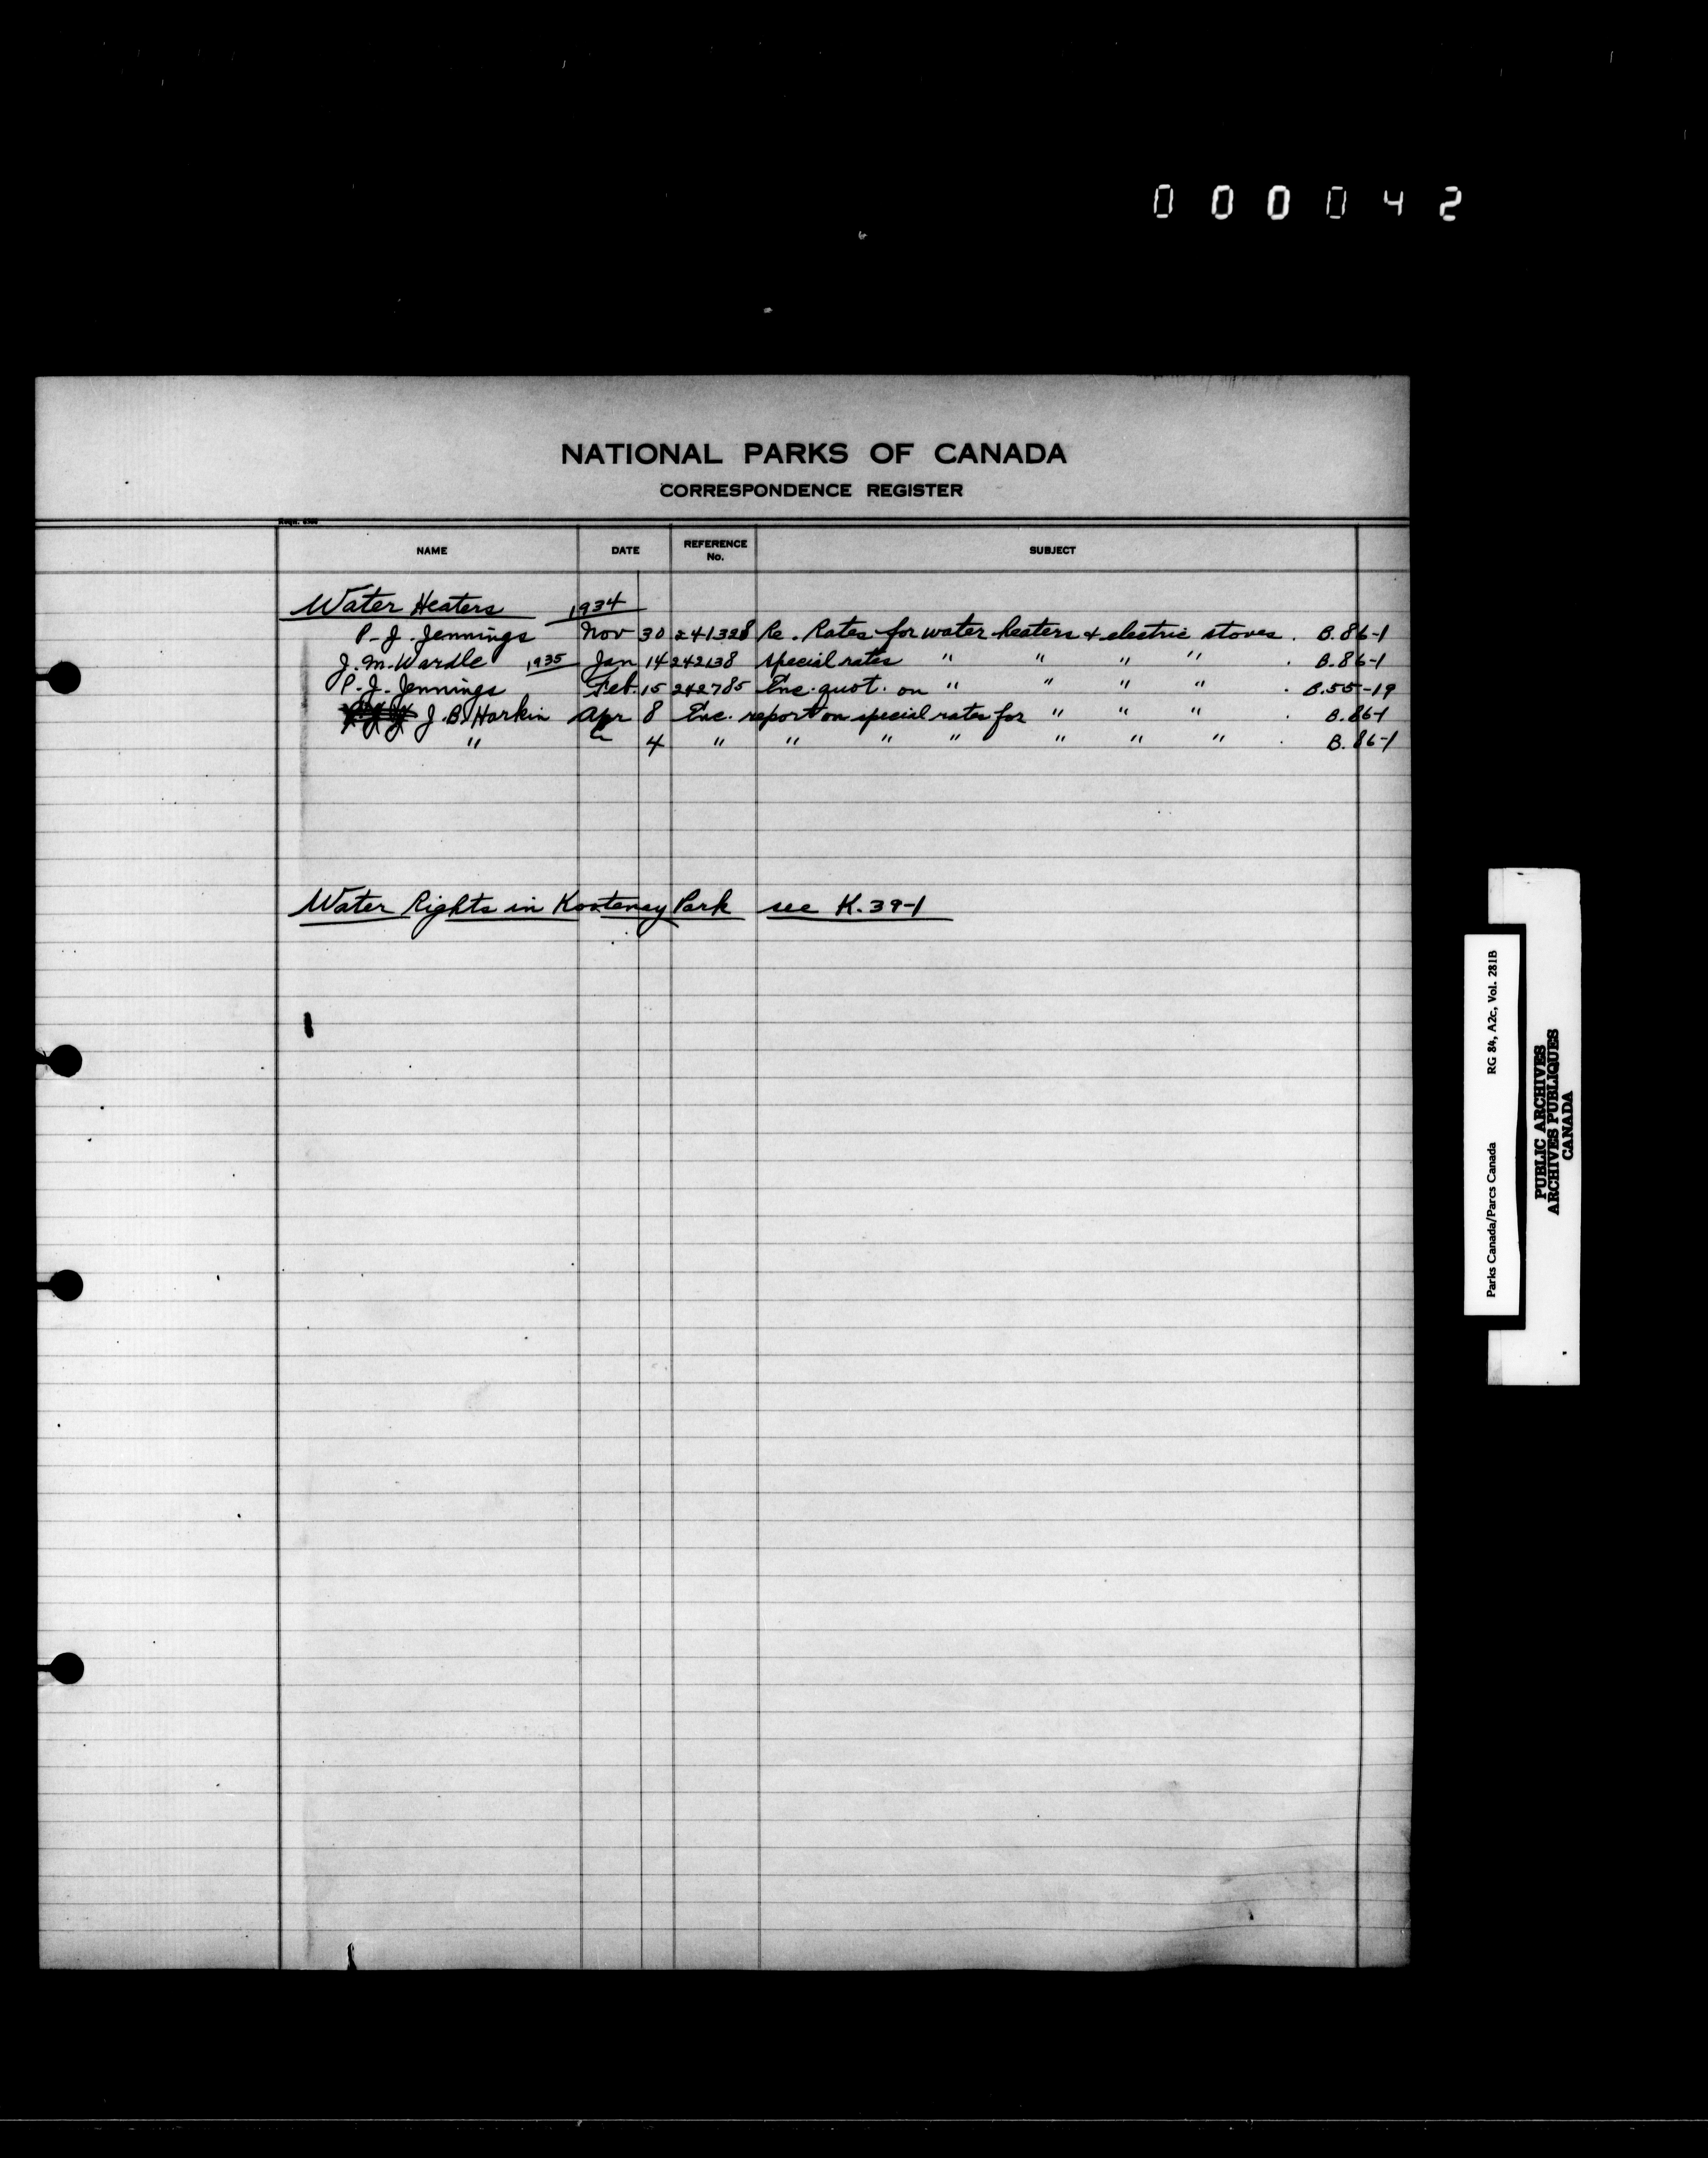 000042
NATIONAL PARKS OF CANADA
CORRESPONDENCE REGISTER
NAME DATE REFERENCE No. SUBJECT
Water Heaters 1934
P. J. Jennings Nov 30 241328 Re. Rates for water heaters & electric stoves. B.86-1
J. M. Wardle 1935 Jan 14 242138 special rates " " " " . B.86-1
P. J. Jennings Feb. 15 242785 Enc. quot. on " " " " . B.55-19
J. B. Harkin Apr 8 Enc. report on special rates for " " " . B.86-1
" " 4 " " " " " " " . B.86-1
Water Rights in Kootenay Park see K.39-1
Parks Canada/Parcs Canada RG 84, A2c, Vol. 281B
PUBLIC ARCHIVES
ARCHIVES PUBLIQUES
CANADA